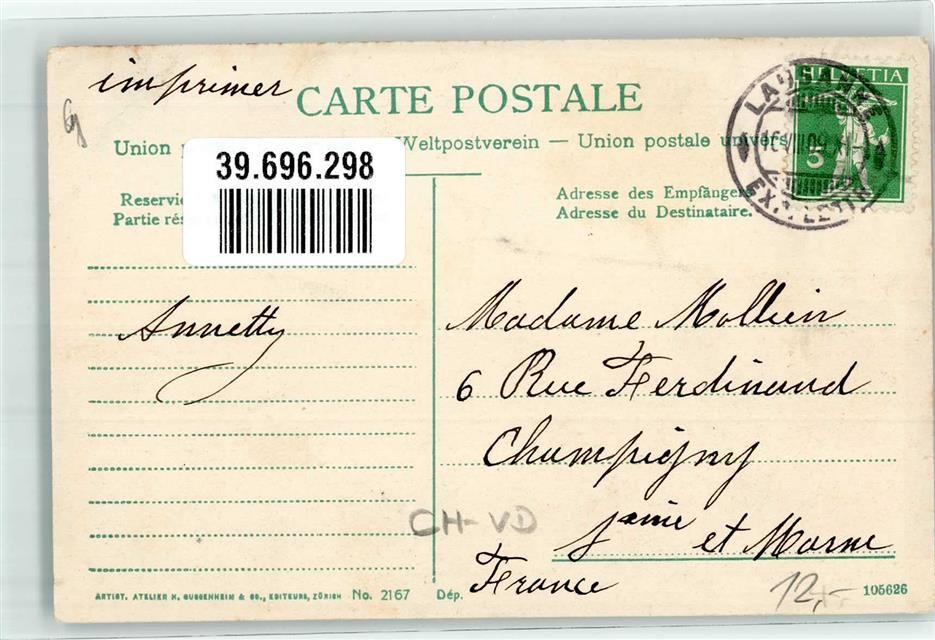 imprimer
CARTE POSTALE
Union Weltpostverein — Union postale univers
39.696.298
HELVETIA
5
LAUSANNE
EXP. LETTR.
Reservie
Partie rés
Adresse des Empfängers
Adresse du Destinataire.
Annetty
Madame Mollien
6 Rue Ferdinand
Champigny
Seine et Marne
France
CH-VD
12,-
ARTIST. ATELIER H. GUGGENHEIM & CO., EDITEURS, ZÜRICH No. 2167 Dép. 105626